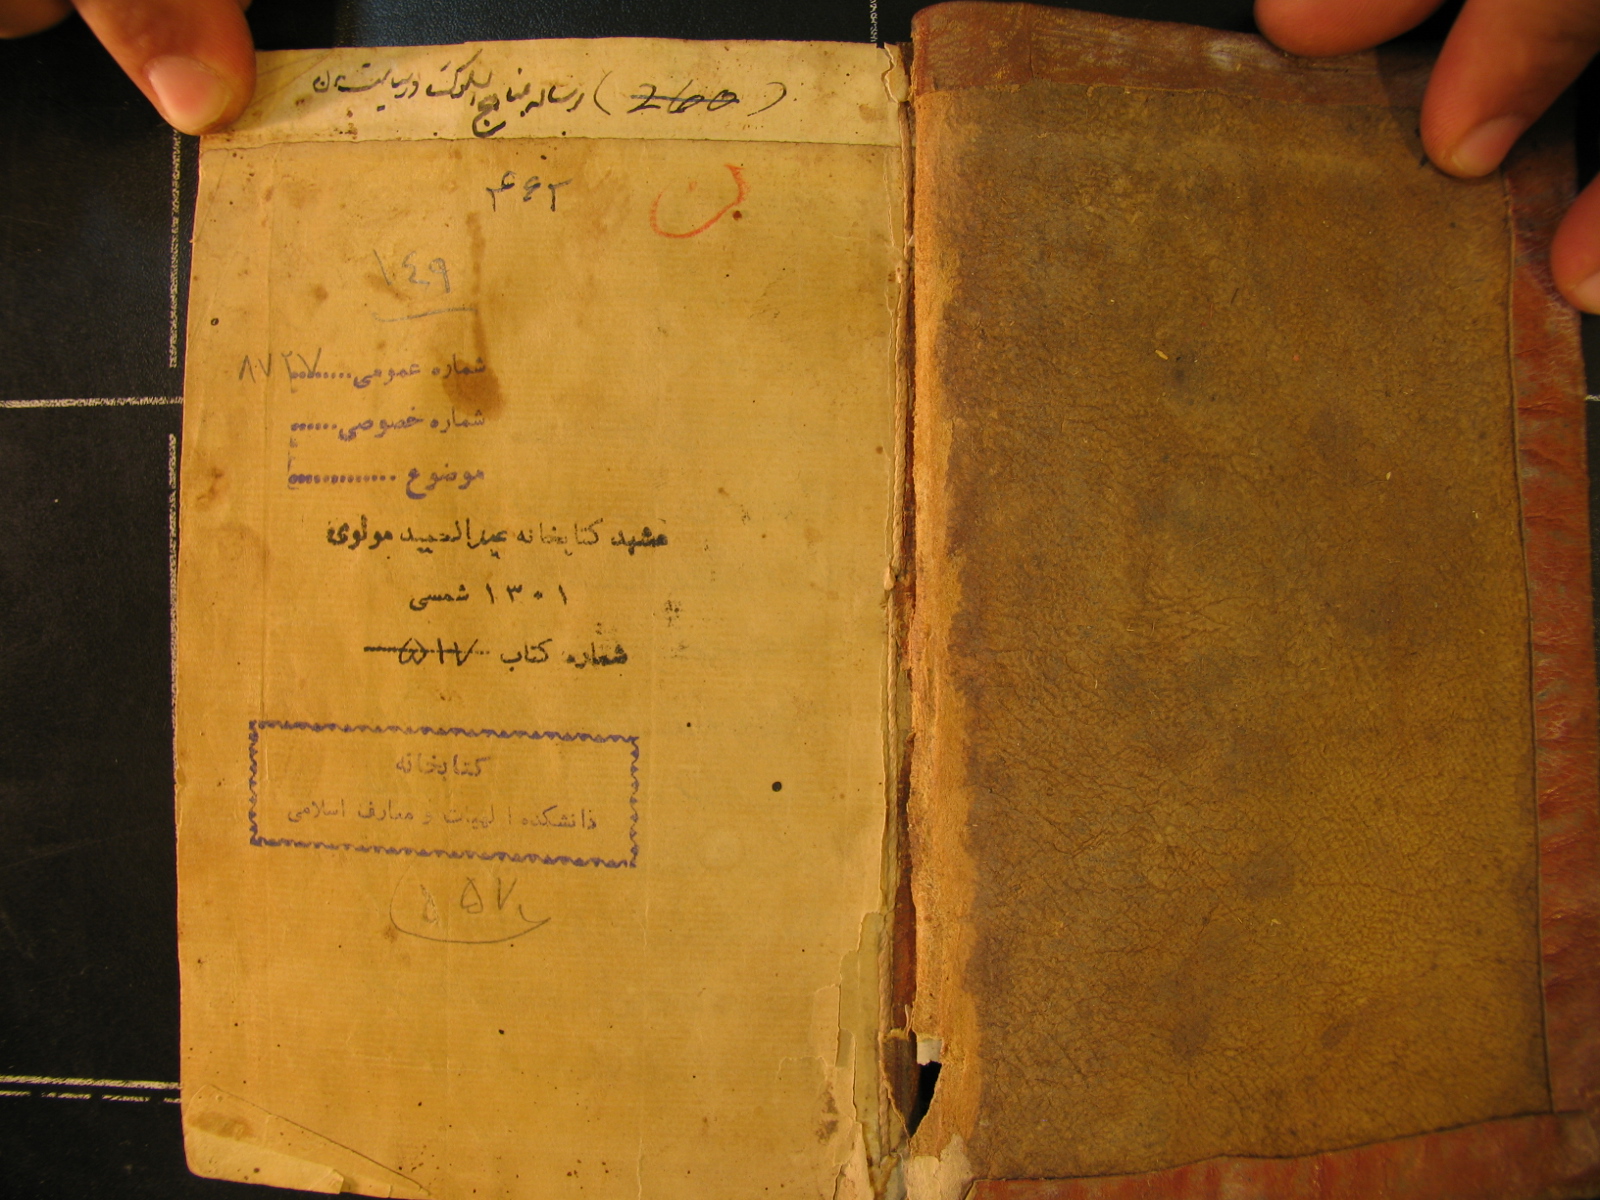 (260) رساله مناهج السلوک در
۴۶۲
ن
۱۴۹
شماره عمومی........
شماره خصوصی......
موضوع ............
مشهد کتابخانه عبدالحمید مولوی
۱۳۰۱ شمسی
شماره کتاب
کتابخانه
دانشکده الهیات و معارف اسلامی